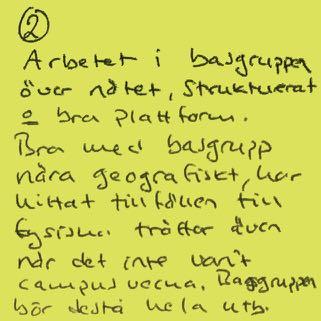 2
Arbetet i basgruppen
över nätet, strukturerat
o bra plattform.
Bra med basgrupp
nära geografiskt, har
hittat tillfällen till
fysiska träffar även
när det inte varit
campusvecka. Basgruppen
bör bestå hela utb.